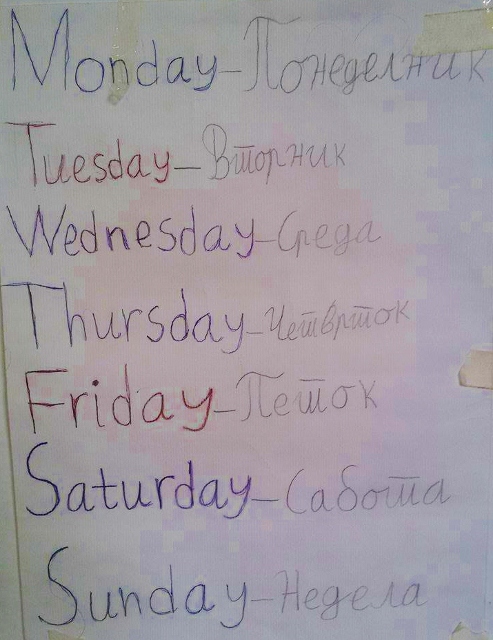 Monday-Понеделник
Tuesday-Вторник
Wednesday-Среда
Thursday-Четврток
Friday-Петок
Saturday-Сабота
Sunday-Недела